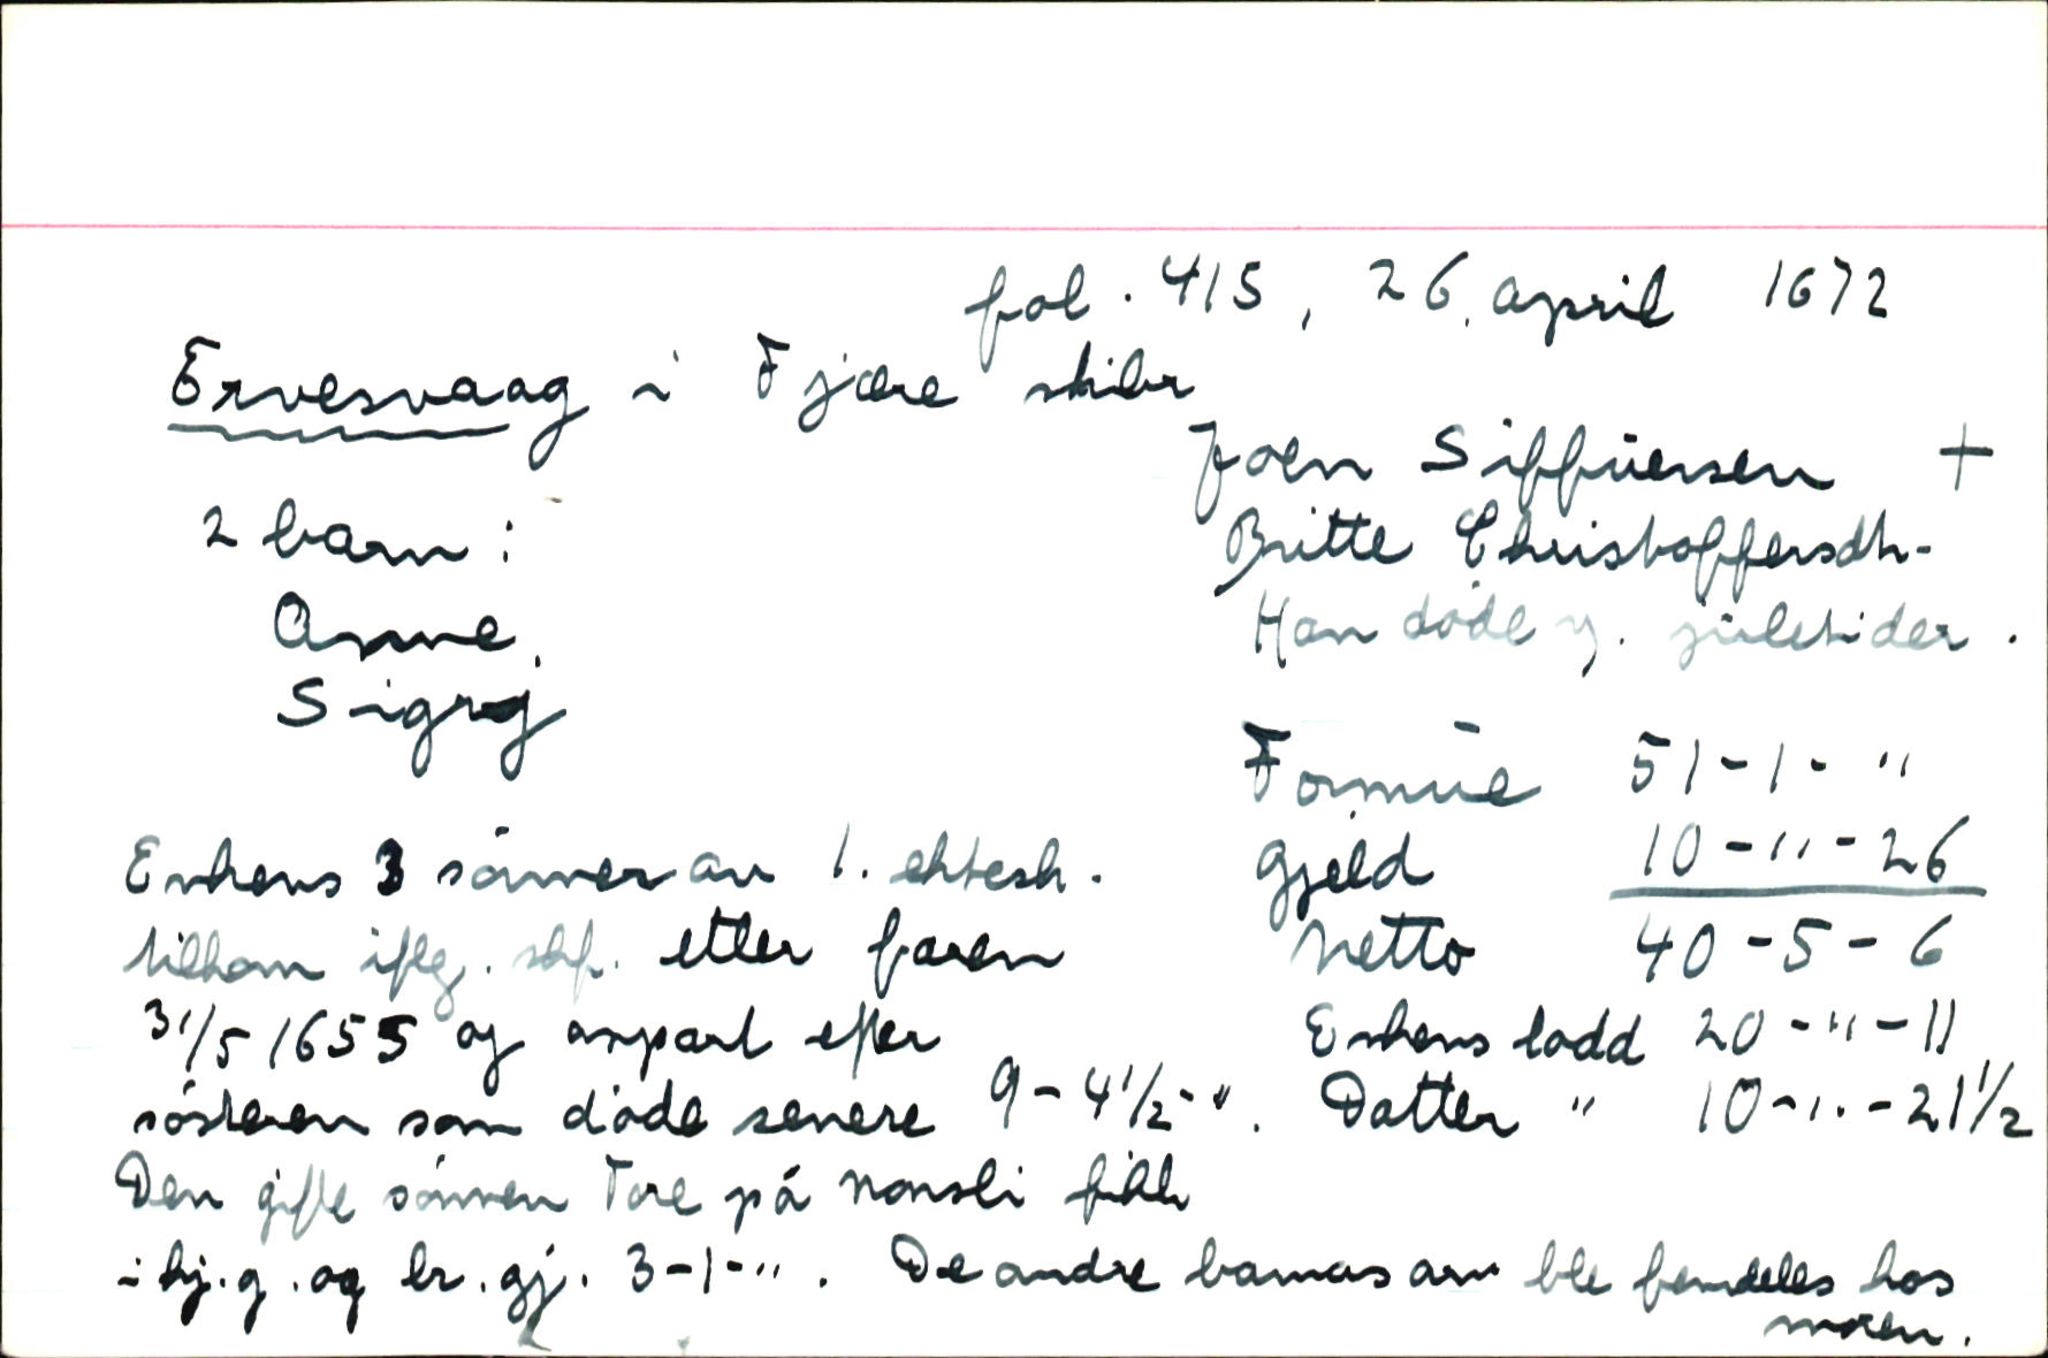 fol. 415, 26. april 1672
Ervesvaag i Fjære skibr
Joen Siffüersen +
2 barn: Britte Christoffersdtr.
Anne, Han døde v. juletider.
Sigrij
Formüe 51-1-"
Enkens 3 sønner av 1. ektesk. Gjeld 10-"-26
tilkom iflg. skf. etter faren Netto 40-5-6
31/5 1655 og anpart efter Enkens lodd 20-"-11
søsteren som døde senere 9-4 1/2-". Datter " 10-"-21 1/2
Den gifte sønnen Tore på Nonsli fikk
i hj.g. og br.gj. 3-1-". De andre barnas arv ble fremdeles hos
moren.